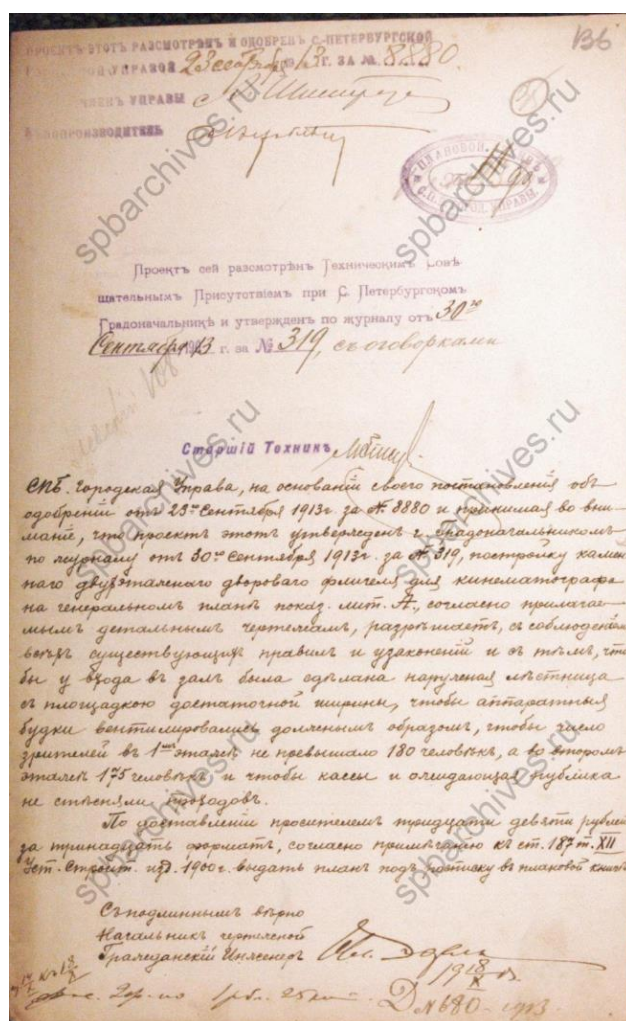 136
ПРОЕКТЪ ЭТОТЪ РАЗСМОТРѢНЪ И ОДОБРЕНЪ С.-ПЕТЕРБУРГСКОЙ
УПРАВОЙ 23 сентяб 1913 Г. ЗА № 8880.
ЧЛЕНЪ УПРАВЫ
ДѢЛОПРОИЗВОДИТЕЛЬ
Проектъ сей разсмотрѣнъ Техническимъ Совѣ-
щательнымъ Присутствіемъ при С. Петербургскомъ
Градоначальникѣ и утвержденъ по журналу отъ 30го
Сентября 1913 г. за № 319, съ оговорками
Старшій Техникъ
СПБ. Городская Управа, на основаніи своего постановленія объ
одобреніи отъ 23го Сентября 1913г. за № 8880 и принимая во вни-
маніе, что проектъ этотъ утвержденъ г. Градоначальникомъ
по журналу отъ 30го Сентября 1913г. за № 319, постройку камен-
наго двухэтажнаго двороваго флигеля для кинематографа
на генеральномъ планѣ показ. лит. А, согласно прилагае-
мымъ детальнымъ чертежамъ, разрѣшаетъ, съ соблюденіемъ
всѣхъ существующихъ правилъ и узаконеній и съ тѣмъ, что
бы у входа въ залъ была сдѣлана наружная лѣстница
съ площадкою достаточной ширины, чтобы аппаратныя
будки вентилировались должнымъ образомъ, чтобы число
зрителей въ 1мъ этажѣ не превышало 180 человѣкъ, а во второмъ
этажѣ 175 человѣкъ и чтобы кассы и ожидающая публика
не стѣсняли проходовъ.
По доставленіи просителемъ тридцати девяти рублей
за тринадцать форматъ, согласно примѣчанію къ ст. 187 т. XII
Уст. Строит. изд. 1900г. выдать планъ подъ росписку въ плановой книгѣ
Съ подлиннымъ вѣрно
Начальникъ чертежной
Гражданскій Инженеръ
19 18/X 13
Д №680 - 1913
spbarchives.ru
spbarchives.ru
spbarchives.ru
spbarchives.ru
spbarchives.ru
spbarchives.ru